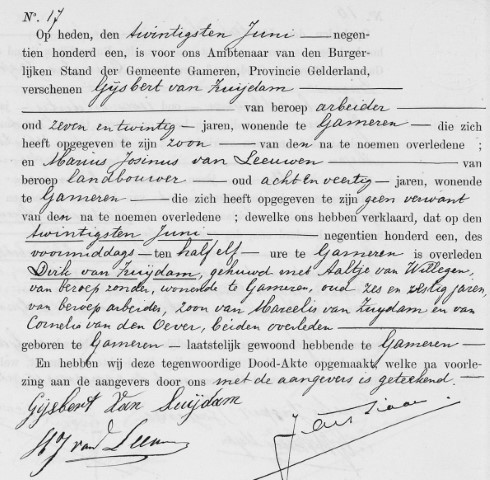 Nº. 17
Op heden, den twintigsten Juni negen-
tien honderd een, is voor ons Ambtenaar van den Burger-
lijken Stand der Gemeente Gameren, Provincie Gelderland,
verschenen Gijsbert van Zuijdam
van beroep arbeider
oud zeven en twintig jaren, wonende te Gameren die zich
heeft opgegeven te zijn zoon van den na te noemen overledene ;
en Marius Josinus van Leeuwen van
beroep landbouwer oud acht en veertig jaren, wonende
te Gameren die zich heeft opgegeven te zijn geen verwant
van den na te noemen overledene ; dewelke ons hebben verklaard, dat op den
twintigsten Juni negentien honderd een, des
voormiddags ten half elf ure te Gameren is overleden
Dirk van Zuijdam, gehuwd met Aaltje van Willegen,
van beroep zonder, wonende te Gameren, oud zes en zestig jaren,
van beroep arbeider, zoon van Marcelis van Zuydam en van
Cornelia van den Oever, beiden overleden
geboren te Gameren laatstelijk gewoond hebbende te Gameren
En hebben wij deze tegenwoordige Dood-Akte opgemaakt, welke na voorle-
zing aan de aangevers door ons met de aangevers is geteekend.
Gijsbert Van Zuijdam
M J van Leeu